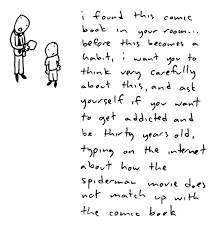 i found this comic
book in your room...
before this becomes a
habit, i want you to
think very carefully
about this, and ask
yourself if you want
to get addicted and
be thirty years old,
typing on the internet
about how the
spiderman movie does
not match up with
the comic book